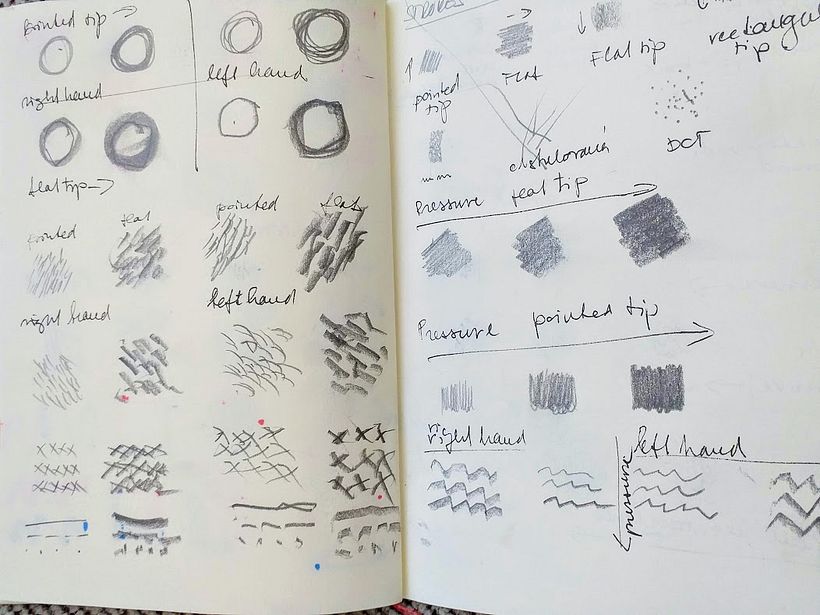 pointed tip →
left hand
right hand
flat tip →
pointed
flat
pointed
flat
right hand
left hand
STROKES
pointed
tip
FLAT
FLAT tip
rectangular
tip
DOT
Pressure flat tip
Pressure pointed tip
right hand
left hand
pressure